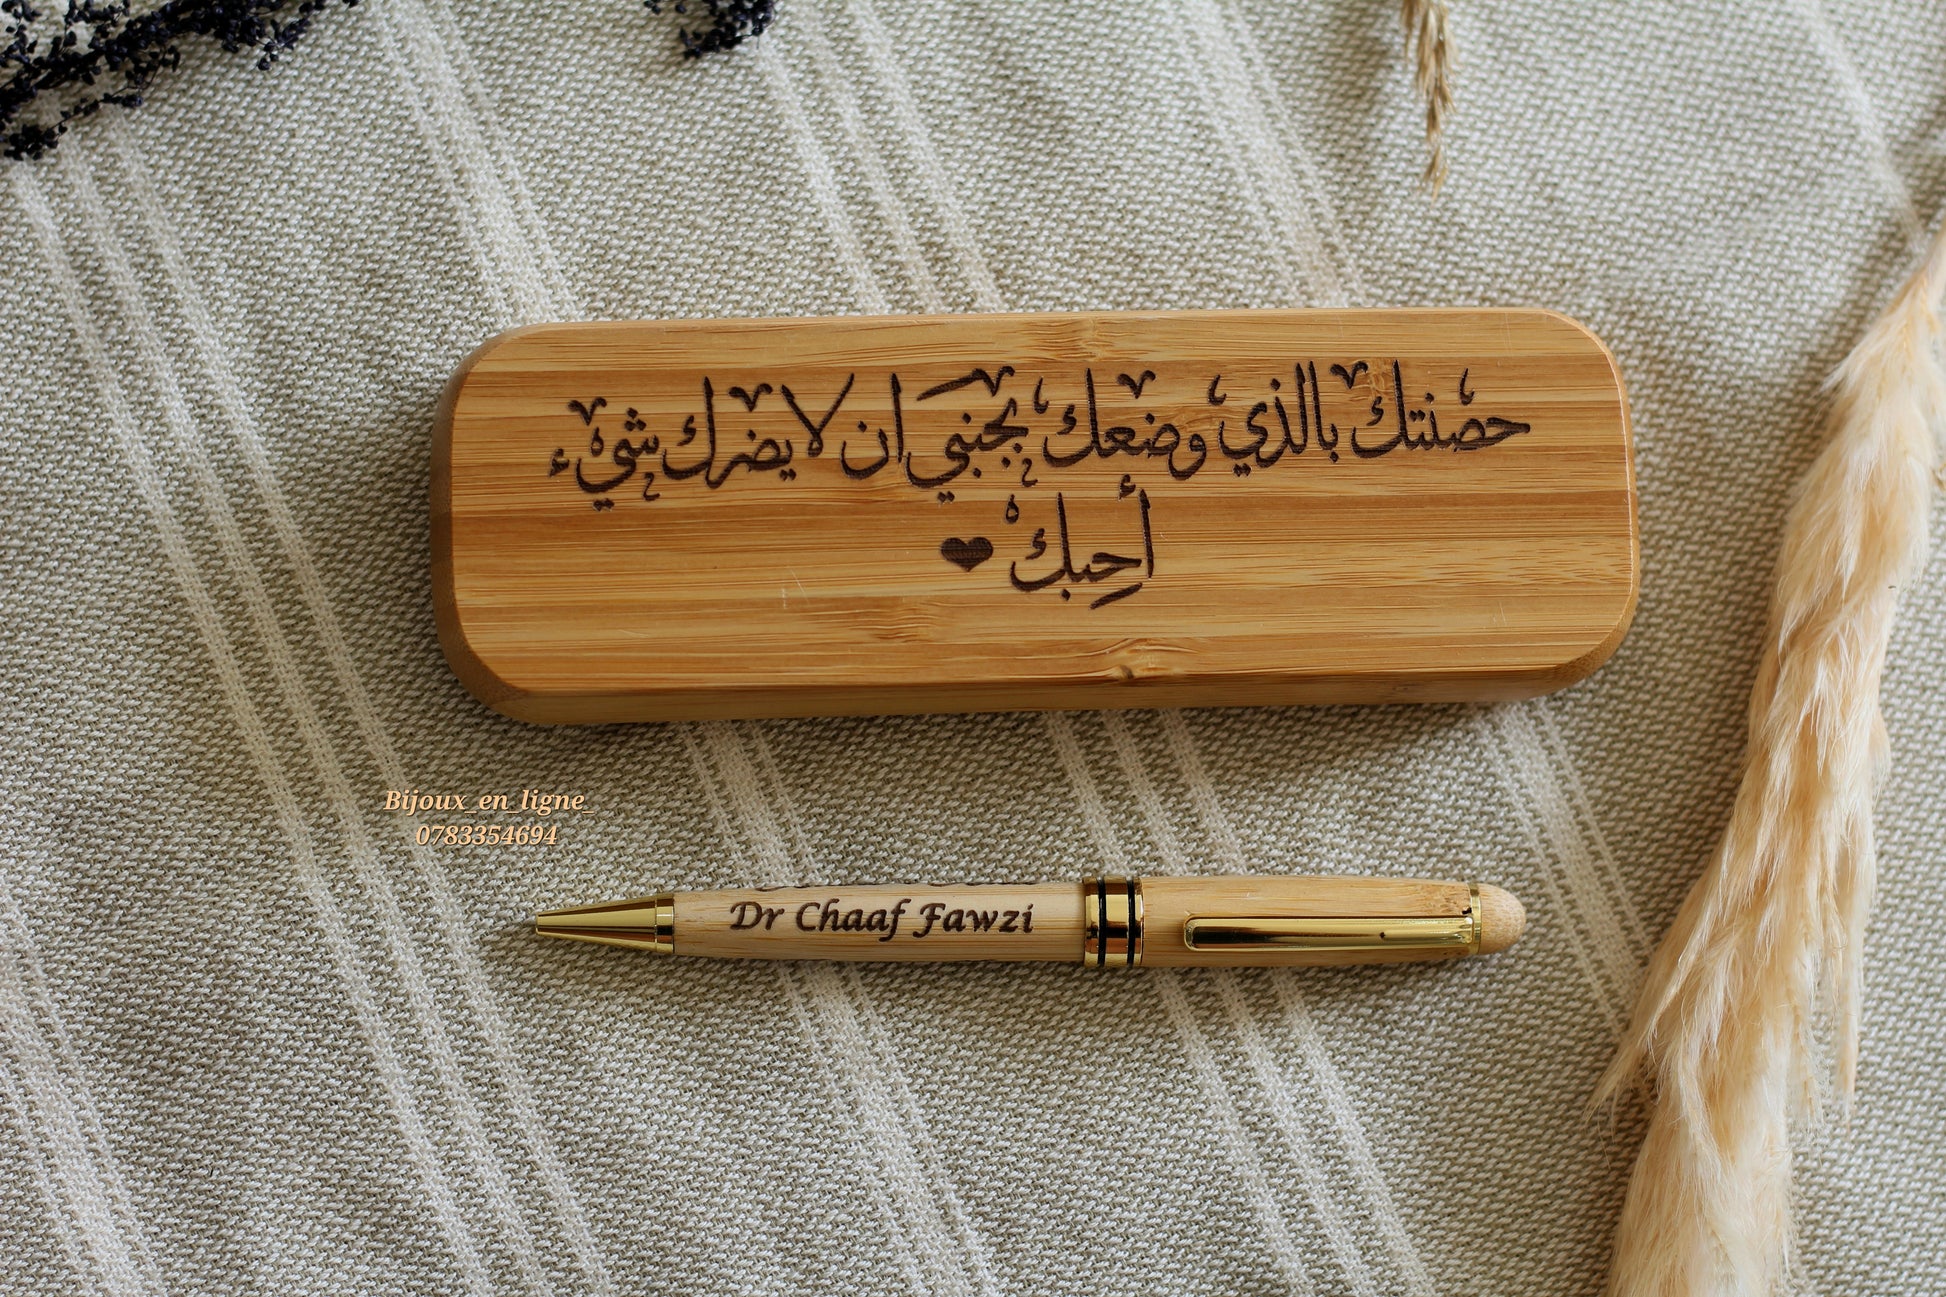 حصنتك بالذي وضعك بجنبي ان لا يضرك شيء
أحبك ❤
Bijoux_en_ligne_
0783354694
Dr Chaaf Fawzi